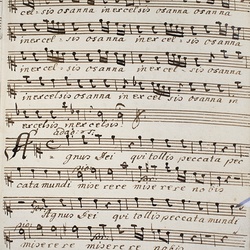 cel-sis osanna in excelsis osanna
in excel-sis osanna in excel-sis osanna
in excelsis osanna in excel-sis osanna
in excelsis osanna in excel-sis osanna in
excelsis in excelsis
Agnus Dei qui tollis peccata pec
cata mundi miserere miserere nobis
Agnus Dei qui tollis peccata mundi
miserere miserere nobis